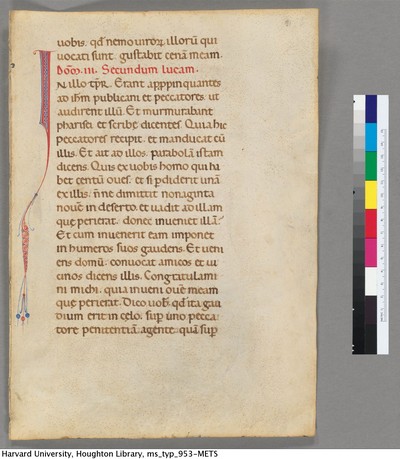 uobis. qđ nemo uiroꝝ illorũ qui
uocati sunt gustabit cenã meam.
Dõm. iii. Secundum lucam.
IN illo tp̃r. Erant appp̃inquantes
ad ih̃m publicani et peccatores. ut
audirent illũ. Et murmurabant
pharisei. et scribe dicentes. Quia hic
peccatores recipit. et manducat cũ
illis. Et ait ad illos. parabolã istam
dicens. Quis ex uobis homo qui ha
bet centũ oues. et si p̃diderit unã
ex illis. ñne dimittit nonaginta
nouẽ in deserto. et uadit ad illam
que perierat. donec inueniet illã?
Et cum inuenerit eam imponet
in humeros suos gaudens. Et ueni
ens domũ. conuocat amicos et ui
cinos dicens illis. Congratulami
ni michi. quia inueni ouẽ meam
que perierat. Dico uob̃. qđ ita gau
dium erit in celo. sup̃ uno pecca
tore penitentiã agente. quã sup̃
Harvard University, Houghton Library, ms_typ_953-METS